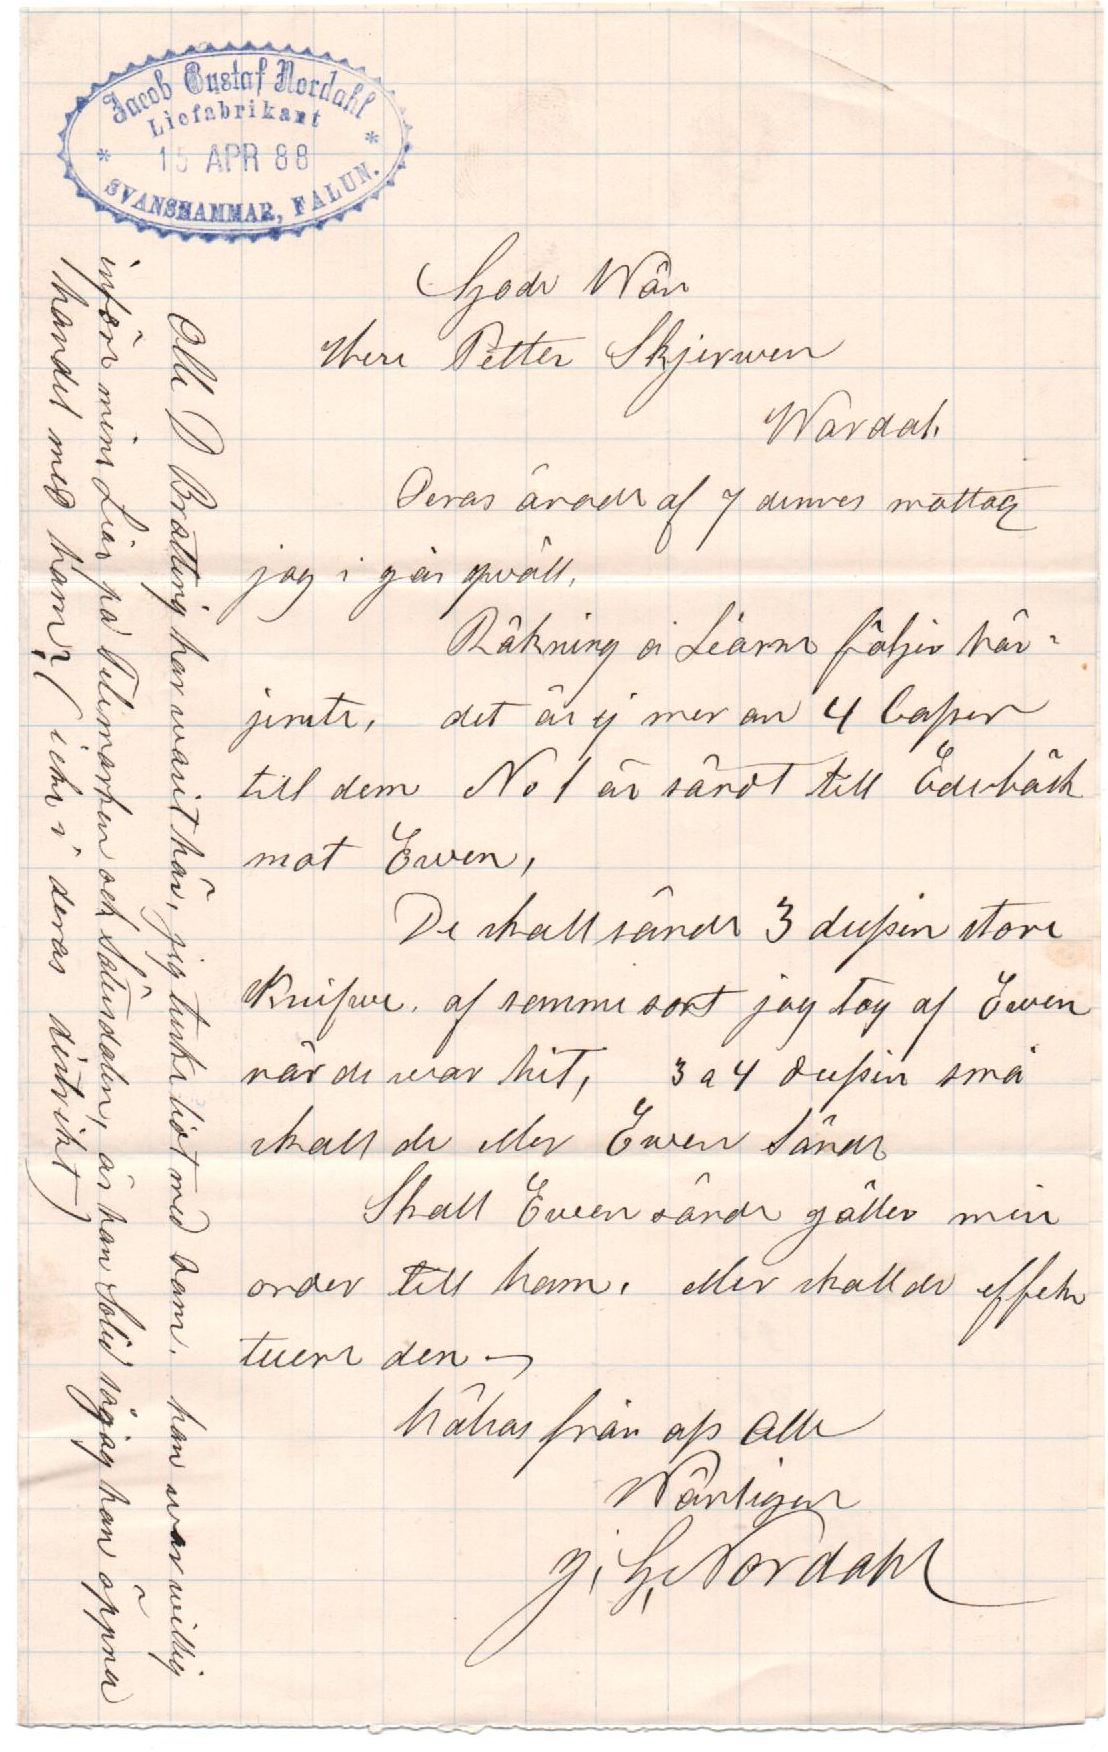 Jacob Gustaf Nordahl
Liefabrikant
* 15 APR 88 *
SVANSHAMMAR, FALUN.
Gode Wän
Herr Petter Skjerwen
Wardal.
Deras ärade af 7 dennes mottog
jag i går qwäll,
Räkning å Liarne följer här-
jemte, det är ej mer än 4 Casser
till dem No 1 är sändt till
mot Ewen,
De skall sände 3 dussin store
Knifwe. af samme sort jag tog af Ewen
när de war hit, 3 a 4 dussin små
skall de eller Ewen sände
Skall Ewen sände gäller min
order till ham. eller skall de effek
tuere den
hälsas från oss Alle
Wänligen
J. G. Nordahl
Olle P Bratting har warit här, jeg tenkte lidt med ham. han war willig
införe mine Liar på Telemarken och Sätersdalen, är han Solid så jag kan öppna
handel med ham? (icke i deras distrikt)